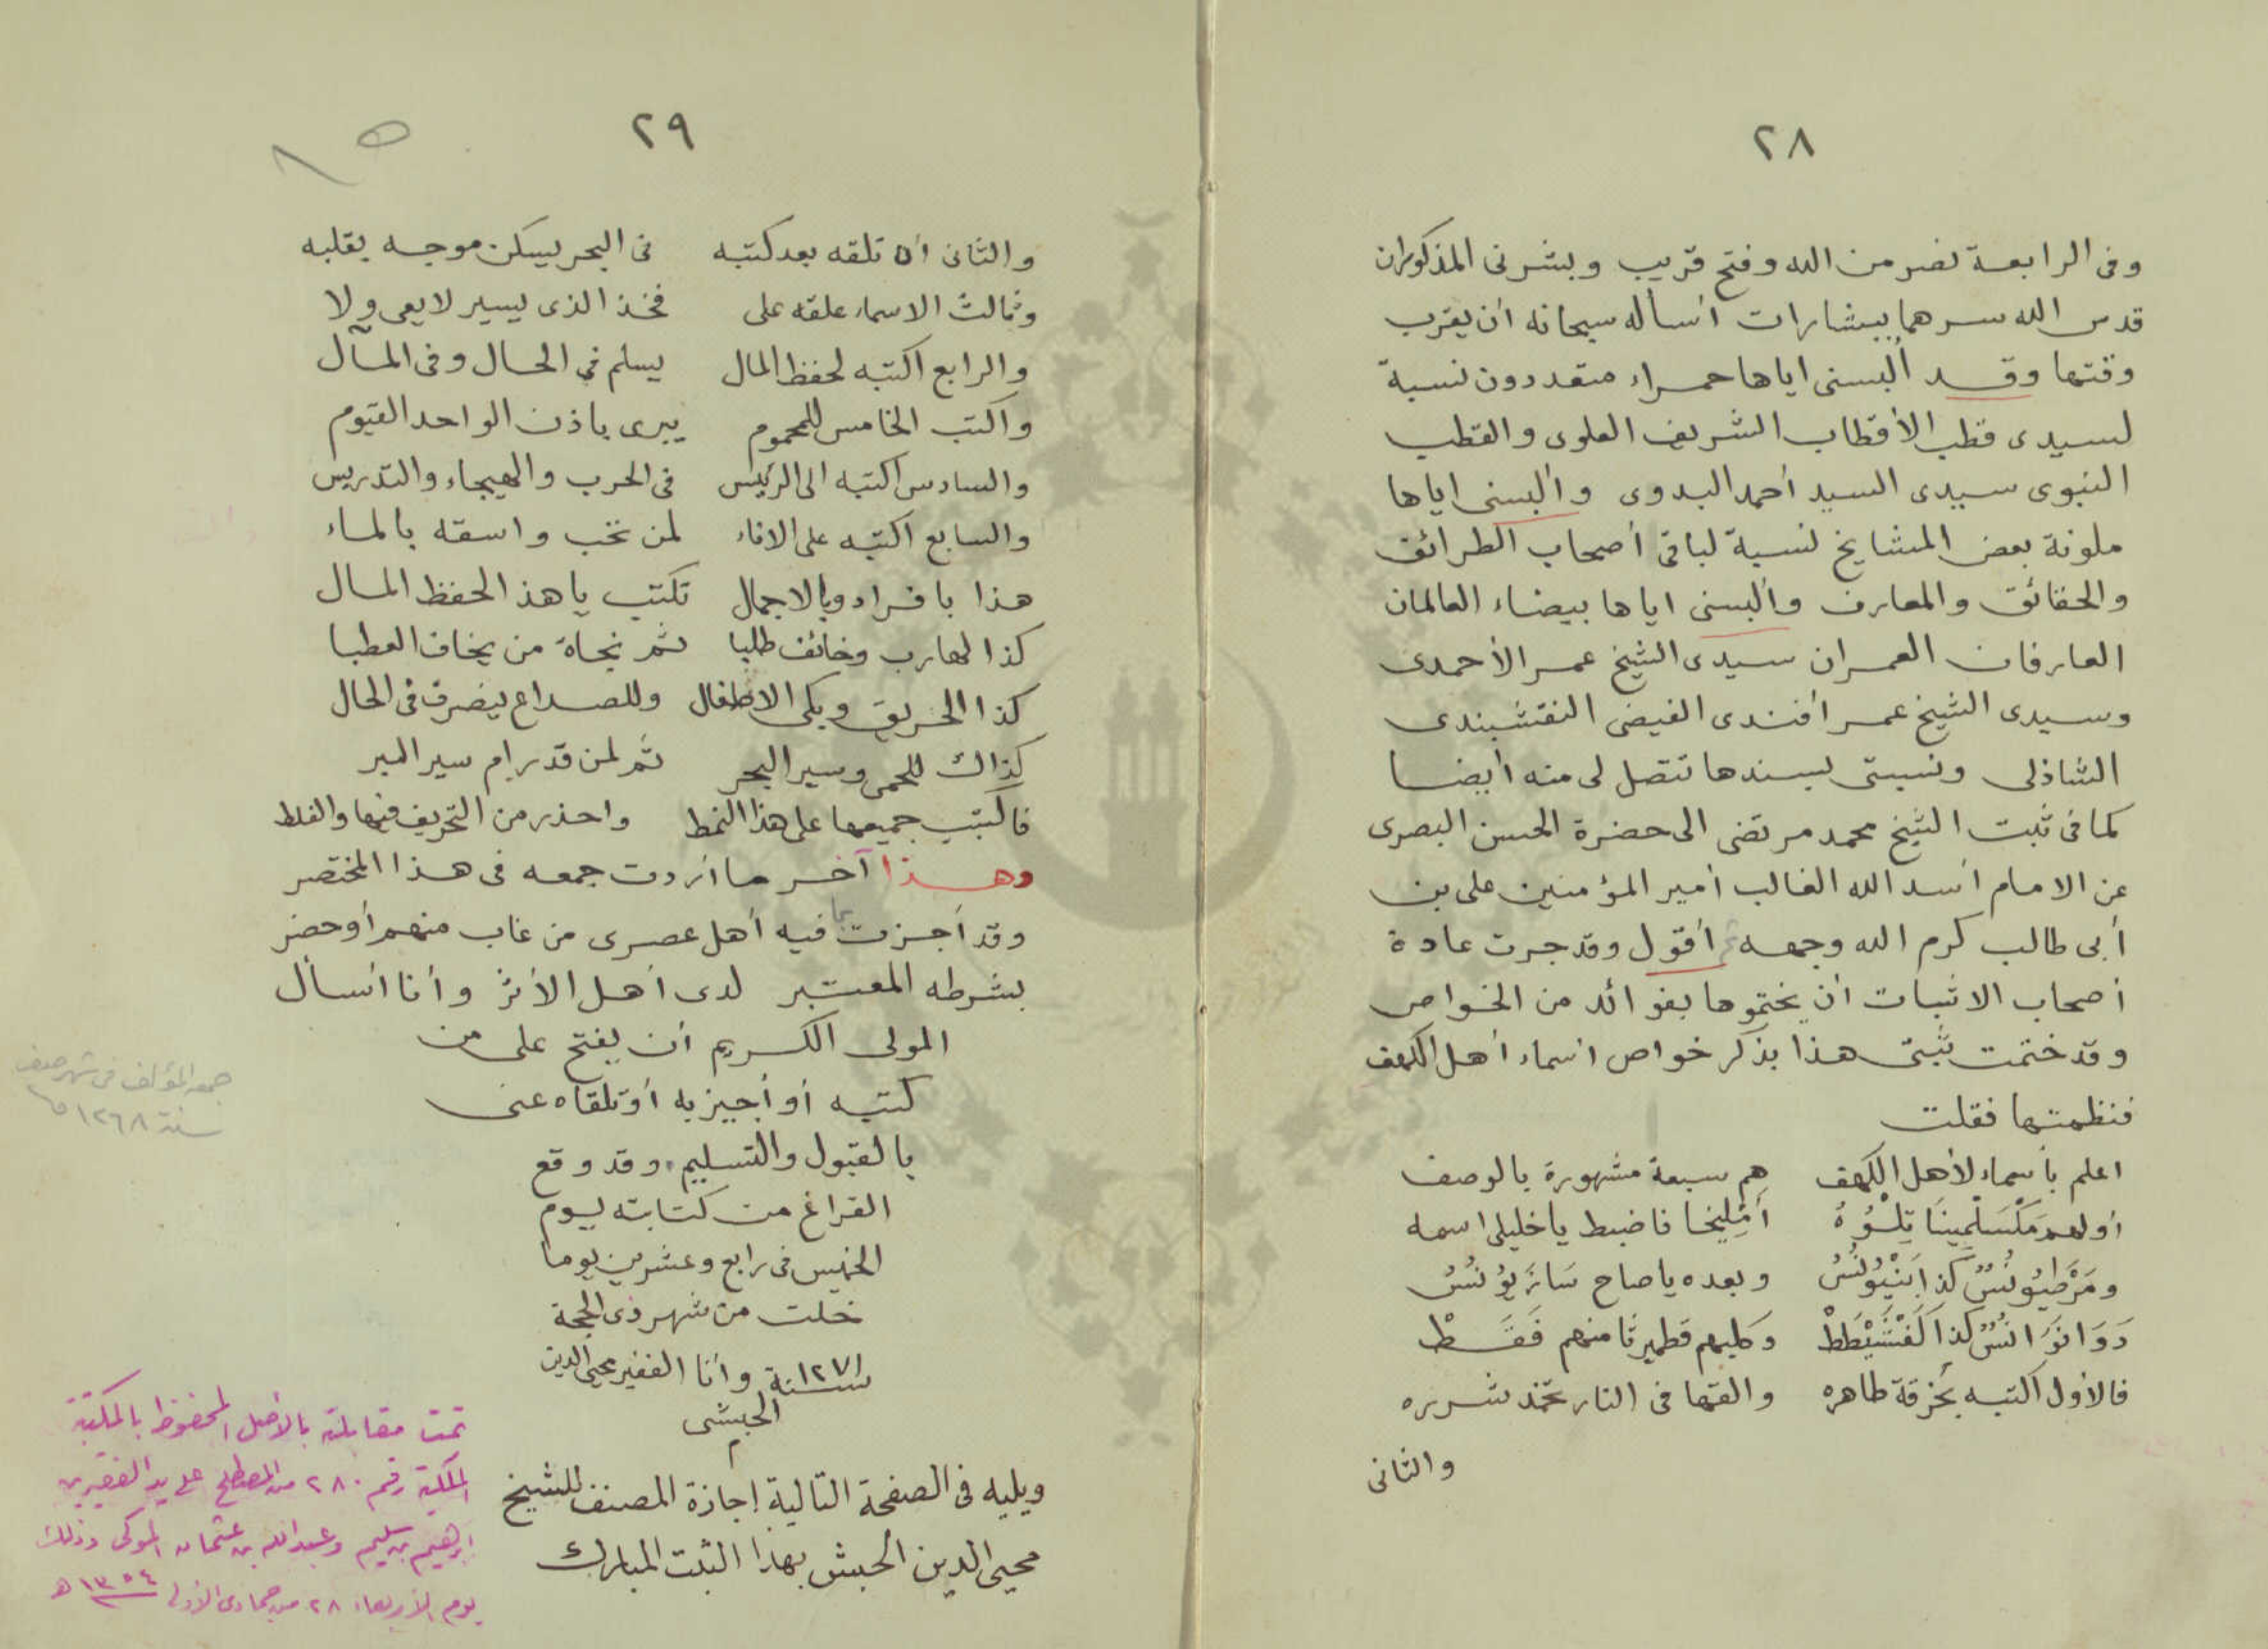 ٢٨
وفى الرابعة نصر من الله وفتح قريب وبشرنى المذكوران
قدس الله سرهما ببشارات أسأله سبحانه أن يقرب
وقتها وقد ألبسنى اياها حمراء متعددون نسبة
لسيدى قطب الأقطاب الشريف العلوى والقطب
النبوى سيدى السيد أحمد البدوى وألبسنى اياها
ملونة بعض المشايخ نسبة لباقى أصحاب الطرائق
والحقائق والمعارف وألبسنى اياها بيضاء العالمان
العارفان العمران سيدى الشيخ عمر الأحمدى
وسيدى الشيخ عمر أفندى الفيضى النقشبندى
الشاذلى ونسبتى لسندها تتصل لى منه أيضا
كما فى ثبت الشيخ محمد مرتضى الى حضرة الحسن البصرى
عن الامام أسد الله الغالب أمير المؤمنين على بن
أبى طالب كرم الله وجهه أقول وقد جرت عادة
أصحاب الاثبات أن يختموها بفوائد من الخواص
وقد ختمت ثبتى هذا بذكر خواص أسماء أهل الكهف
فنظمتها فقلت
اعلم بأسماء لأهل الكهف هم سبعة مشهورة بالوصف
أولهم مَكْسَلْمِينَا تِلْوُهُ أَمْلِيخَا فاضبط يا خليلى اسمه
ومَرْطِيُونُسٌ كذا يَنْيُونُسُ وبعده يا صاح سَازَيُونُسُ
دَوَانَوَانُسٌ كذا كَفْشَيْطَطْ وكلبهم قطمير ثامنهم فَقَطْ
فالأول اكتبه بخرقة طاهره والقها فى النار تخمد شرره
والثانى
٢٩
والثانى ان تلقه بعد كتبه فى البحر يسكن موجه بقلبه
وثالث الاسماء علقه على فخذ الذى يسير لا يعى ولا
والرابع اكتبه لحفظ المال يسلم فى الحال وفى المآل
واكتب الخامس للمحموم يبرى باذن الواحد القيوم
والسادس اكتبه الى الرئيس فى الحرب والهيجاء والتدريس
والسابع اكتبه على الاناء لمن تحب واسقه بالماء
هذا بافراد وبالاجمال تكتب يا هذ الحفظ المال
كذا لهارب وخائف طلبا ثم نجاة من يخاف العطبا
كذا الحريق وبكى الاطفال وللصداع ينصرف فى الحال
كذاك للحمى وسير البحر ثم لمن قد رام سير البر
فاكتب جميعها على هذا النمط واحذر من التحريف فيها والغلط
وهذا آخر ما أردت جمعه فى هذا المختصر
وقد أجزت بما فيه أهل عصرى من غاب منهم أو حضر
بشرطه المعتبر لدى أهل الأثر وأنا أسأل
المولى الكريم أن يفتح على من
كتبه أو أجيز به أو تلقاه عنى
بالقبول والتسليم وقد وقع
الفراغ من كتابته ليوم
الخميس فى رابع وعشرين يوما
خلت من شهر ذى الحجة
سنة ١٢٧١ وأنا الفقير محيى الدين
الحبشى
م
ويليه فى الصفحة التالية إجازة المصنف للشيخ
محيى الدين الحبشى بهذا الثبت المبارك
جمعه المؤلف فى شهر صفر
سنة ١٢٦٨
تمت مقابلته بالأصل المحفوظ بالمكتبة
الملكية رقم ٢٨٠ من المصطلح على يد الفقيرين
إبراهيم سليم وعبد الله بن عثمان وذلك
يوم الأربعاء ٢٨ من جمادى الأولى ١٣٥٤ هـ